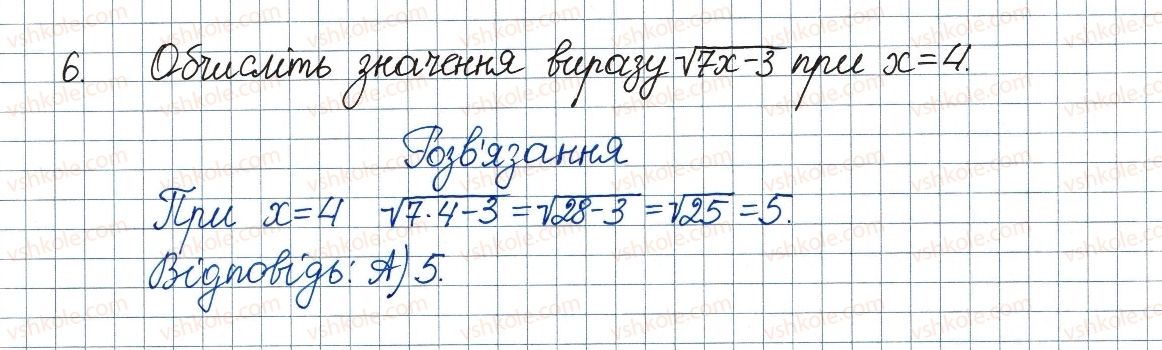 6. Обчисліть значення виразу √7x-3 при x=4.
Розв'язання
При x=4 √7·4-3 = √28-3 = √25 = 5.
Відповідь: А) 5.